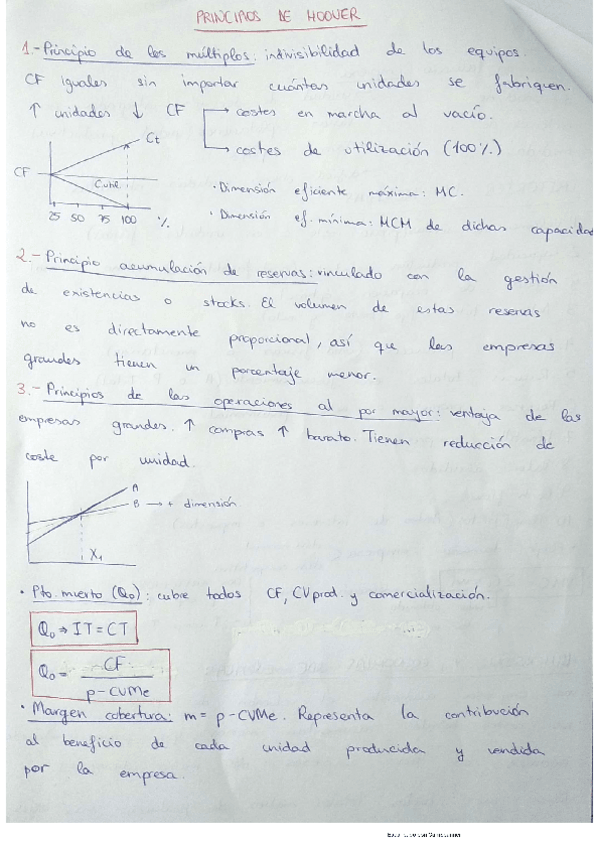 PRINCIPIOS DE HOOVER
1.- Principio de los múltiplos: indivisibilidad de los equipos.
CF iguales sin importar cuántas unidades se fabriquen.
↑ unidades ↓ CF → costes en marcha al vacío.
→ costes de utilización (100%)
Ct
CF
C.util.
25 50 75 100 %
· Dimensión eficiente máxima: MC.
· Dimensión ef. mínima: MCM de dichas capacidad
2.- Principio acumulación de reservas: vinculado con la gestión
de existencias o stocks. El volumen de estas reservas
no es directamente proporcional, así que las empresas
grandes tienen un porcentaje menor.
3.- Principios de las operaciones al por mayor: ventaja de las
empresas grandes. ↑ compras ↑ barato. Tienen reducción de
coste por unidad.
A
B → + dimensión
X₁
· Pto. muerto (Q₀): cubre todos CF, CVprod. y comercialización.
Q₀ ⇒ IT = CT
Q₀ = CF / p - CVMe
· Margen cobertura: m = p - CVMe. Representa la contribución
al beneficio de cada unidad producida y vendida
por la empresa.